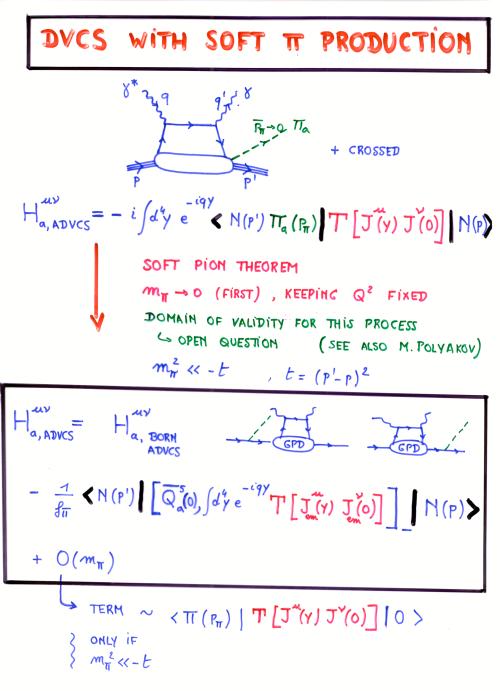 DVCS WITH SOFT π PRODUCTION
γ* q q' γ
p⃗_π→0 π_a
+ CROSSED
p p'
H^{μν}_{a, ADVCS} = - i ∫d⁴y e^{-iqy} < N(p') π_a(p_π) | T [J^μ(y) J^ν(0)] | N(p) >
SOFT PION THEOREM
m_π → 0 (FIRST), KEEPING Q² FIXED
DOMAIN OF VALIDITY FOR THIS PROCESS
↳ OPEN QUESTION (SEE ALSO M. POLYAKOV)
m_π² << -t , t = (p'-p)²
H^{μν}_{a, ADVCS} = H^{μν}_{a, BORN ADVCS} GPD GPD
- 1/f_π < N(p') | [ Q_a^5(0), ∫d⁴y e^{-iqy} T [J^μ_em(y) J^ν_em(0)] ] | N(p) >
+ O(m_π)
↳ TERM ~ < π(p_π) | T [J^μ(y) J^ν(0)] | 0 >
ONLY IF
m_π² << -t